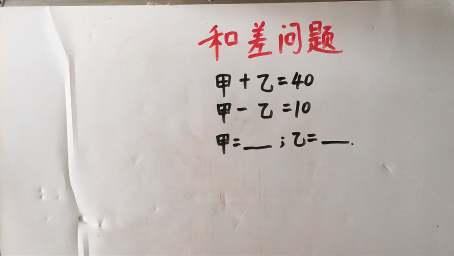 和差问题
甲+乙=40
甲-乙=10
甲=__;乙=__.